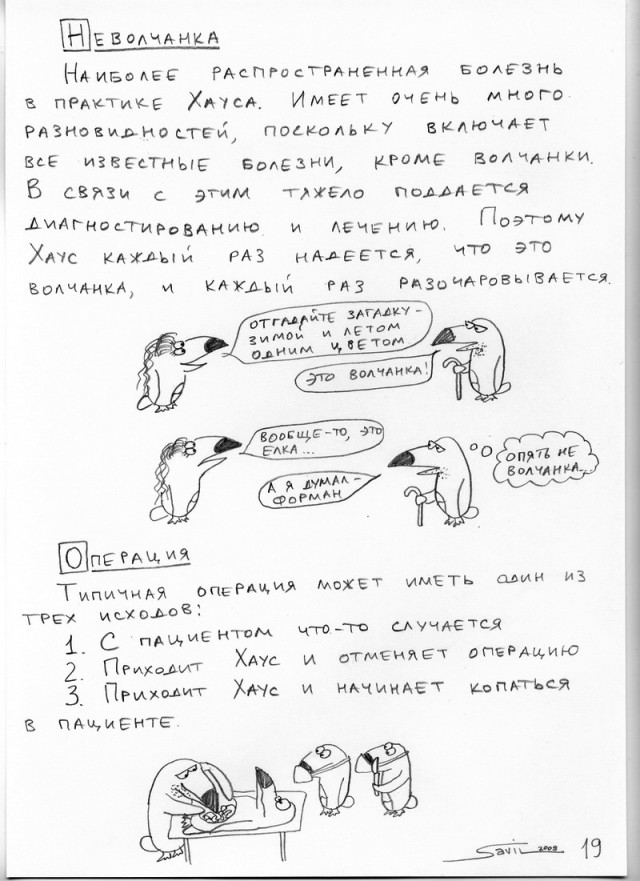 НЕВОЛЧАНКА
НАИБОЛЕЕ РАСПРОСТРАНЕННАЯ БОЛЕЗНЬ
В ПРАКТИКЕ ХАУСА. ИМЕЕТ ОЧЕНЬ МНОГО
РАЗНОВИДНОСТЕЙ, ПОСКОЛЬКУ ВКЛЮЧАЕТ
ВСЕ ИЗВЕСТНЫЕ БОЛЕЗНИ, КРОМЕ ВОЛЧАНКИ.
В СВЯЗИ С ЭТИМ ТЯЖЕЛО ПОДДАЕТСЯ
ДИАГНОСТИРОВАНИЮ И ЛЕЧЕНИЮ. ПОЭТОМУ
ХАУС КАЖДЫЙ РАЗ НАДЕЕТСЯ, ЧТО ЭТО
ВОЛЧАНКА, И КАЖДЫЙ РАЗ РАЗОЧАРОВЫВАЕТСЯ.
ОТГАДАЙТЕ ЗАГАДКУ-
ЗИМОЙ И ЛЕТОМ
ОДНИМ ЦВЕТОМ
ЭТО ВОЛЧАНКА!
ВООБЩЕ-ТО, ЭТО
ЕЛКА...
А Я ДУМАЛ-
ФОРМАН
ОПЯТЬ НЕ
ВОЛЧАНКА...
ОПЕРАЦИЯ
ТИПИЧНАЯ ОПЕРАЦИЯ МОЖЕТ ИМЕТЬ ОДИН ИЗ
ТРЕХ ИСХОДОВ:
1. С ПАЦИЕНТОМ ЧТО-ТО СЛУЧАЕТСЯ
2. ПРИХОДИТ ХАУС И ОТМЕНЯЕТ ОПЕРАЦИЮ
3. ПРИХОДИТ ХАУС И НАЧИНАЕТ КОПАТЬСЯ
В ПАЦИЕНТЕ.
Savin 2008
19